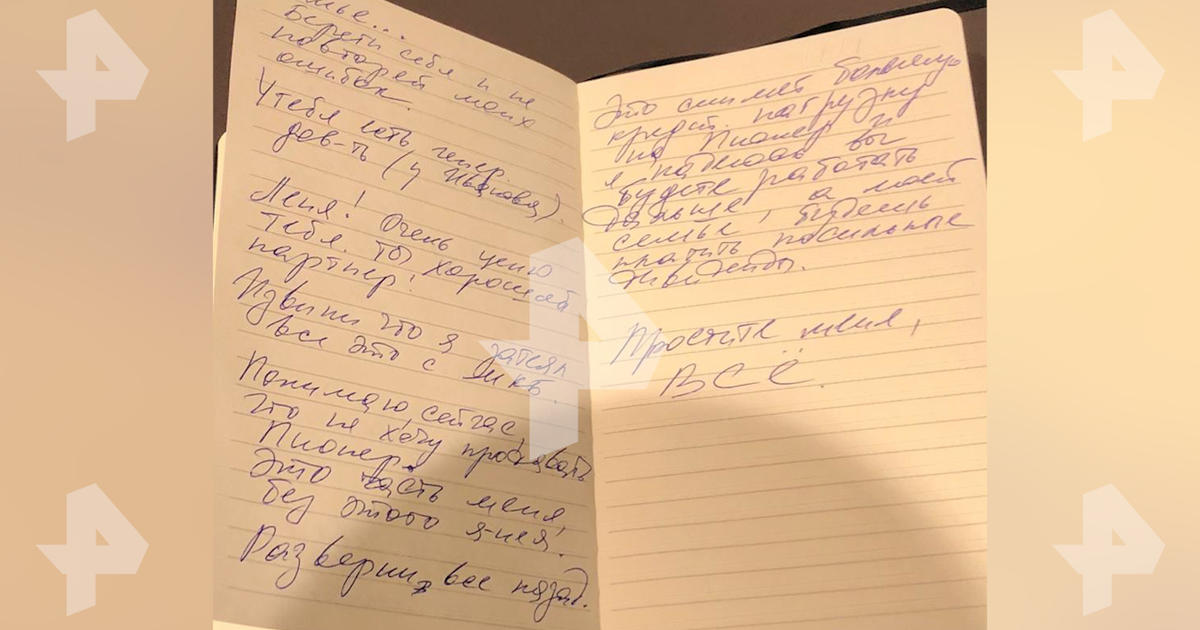 мье...
Береги себя и не
повторяй моих
ошибок.
У тебя есть генер.
дов-ть (у Иванова).
Леня! Очень ценю
тебя. Ты хороший
партнер!
Извини что я затеял
все это с МКБ.
Понимаю сейчас,
что не хочу продавать
Пионер.
Это часть меня,
без этого я-не я!
Разверни все назад.
Это снимет большую
кредит. нагрузку
на Пионер и
я надеюсь вы
будете работать
дальше, а моей
семье, будешь
платить посильные
дивиденды.
Простите меня,
ВСЁ.